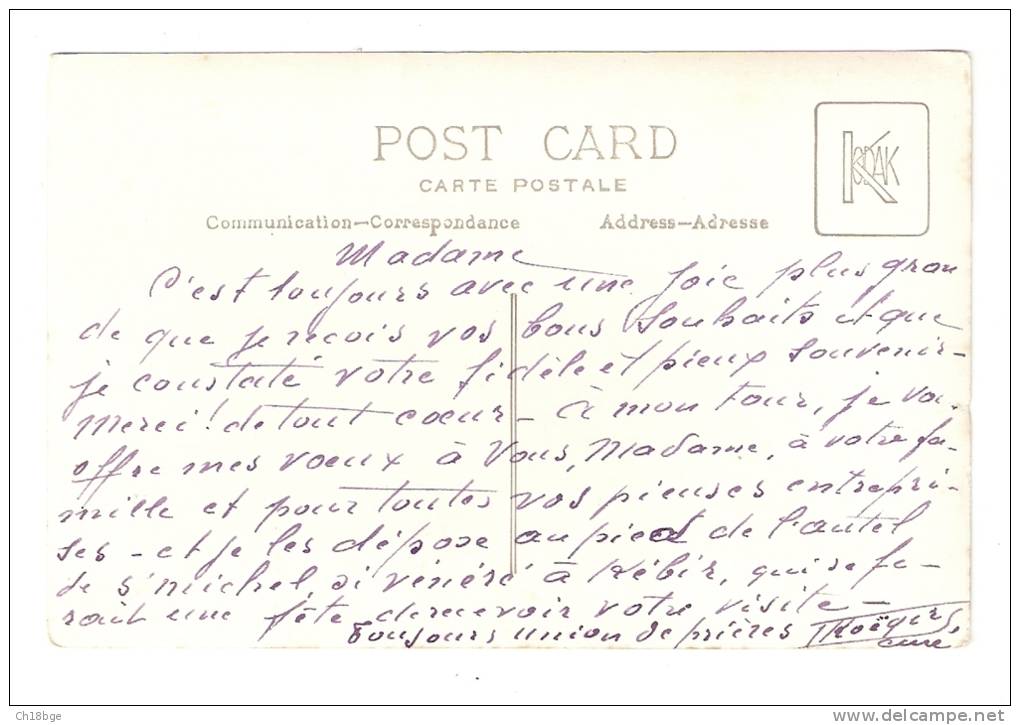 POST CARD
KODAK
CARTE POSTALE
Communication—Correspondance Address—Adresse
Madame
C'est toujours avec une joie plus gran
de que je reçois vos bons souhaits et que
je constate votre fidèle et pieux souvenir—
Merci! de tout coeur— à mon tour, je vs.
offre mes voeux à Vous, Madame, à votre fa-
mille et pour toutes vos pieuses entrepri-
ses— et je les dépose au pied de l'autel
de St michel, si vénéré à Kébir, qui se fe-
rait une fête de recevoir votre visite—
Toujours union de prières
curé
Ch18bge
www.delcampe.net